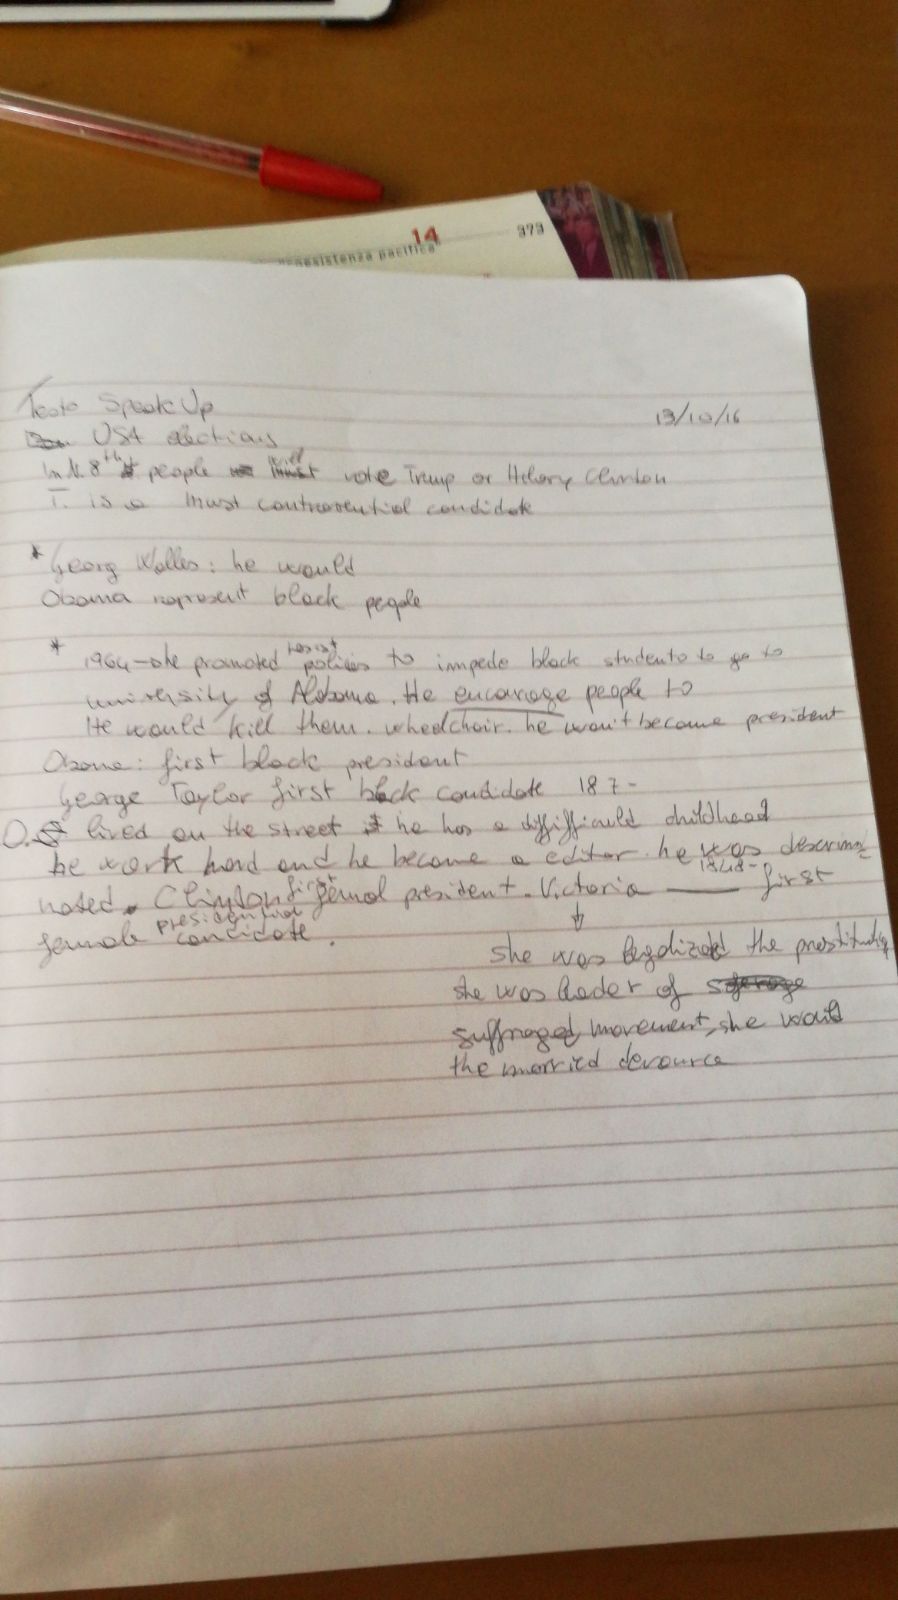 14 373
coesistenza pacifica
Testo Speak Up 13/10/16
USA elections
In N. 8th people will vote Trump or Hilary Clinton
T. is a must controvential candidate
* Georg Walles: he would
Obama represent black people
* 1964 - he promoted racist policies to impede black students to go to
university of Alabama. He encourage people to
He would kill them. wheelchair. he won't become president
Obama: first black president
George Taylor first black candidate 187-
O. lived on the street he has a diffifficuld childhead
he work hard and he become a editor. he was descrimi-
nated. Clinton first femal president. Victoria 1848- first
female presidential candidate.
she was legalized the prostitution
she was leader of
suffraged movement, she would
the married devource